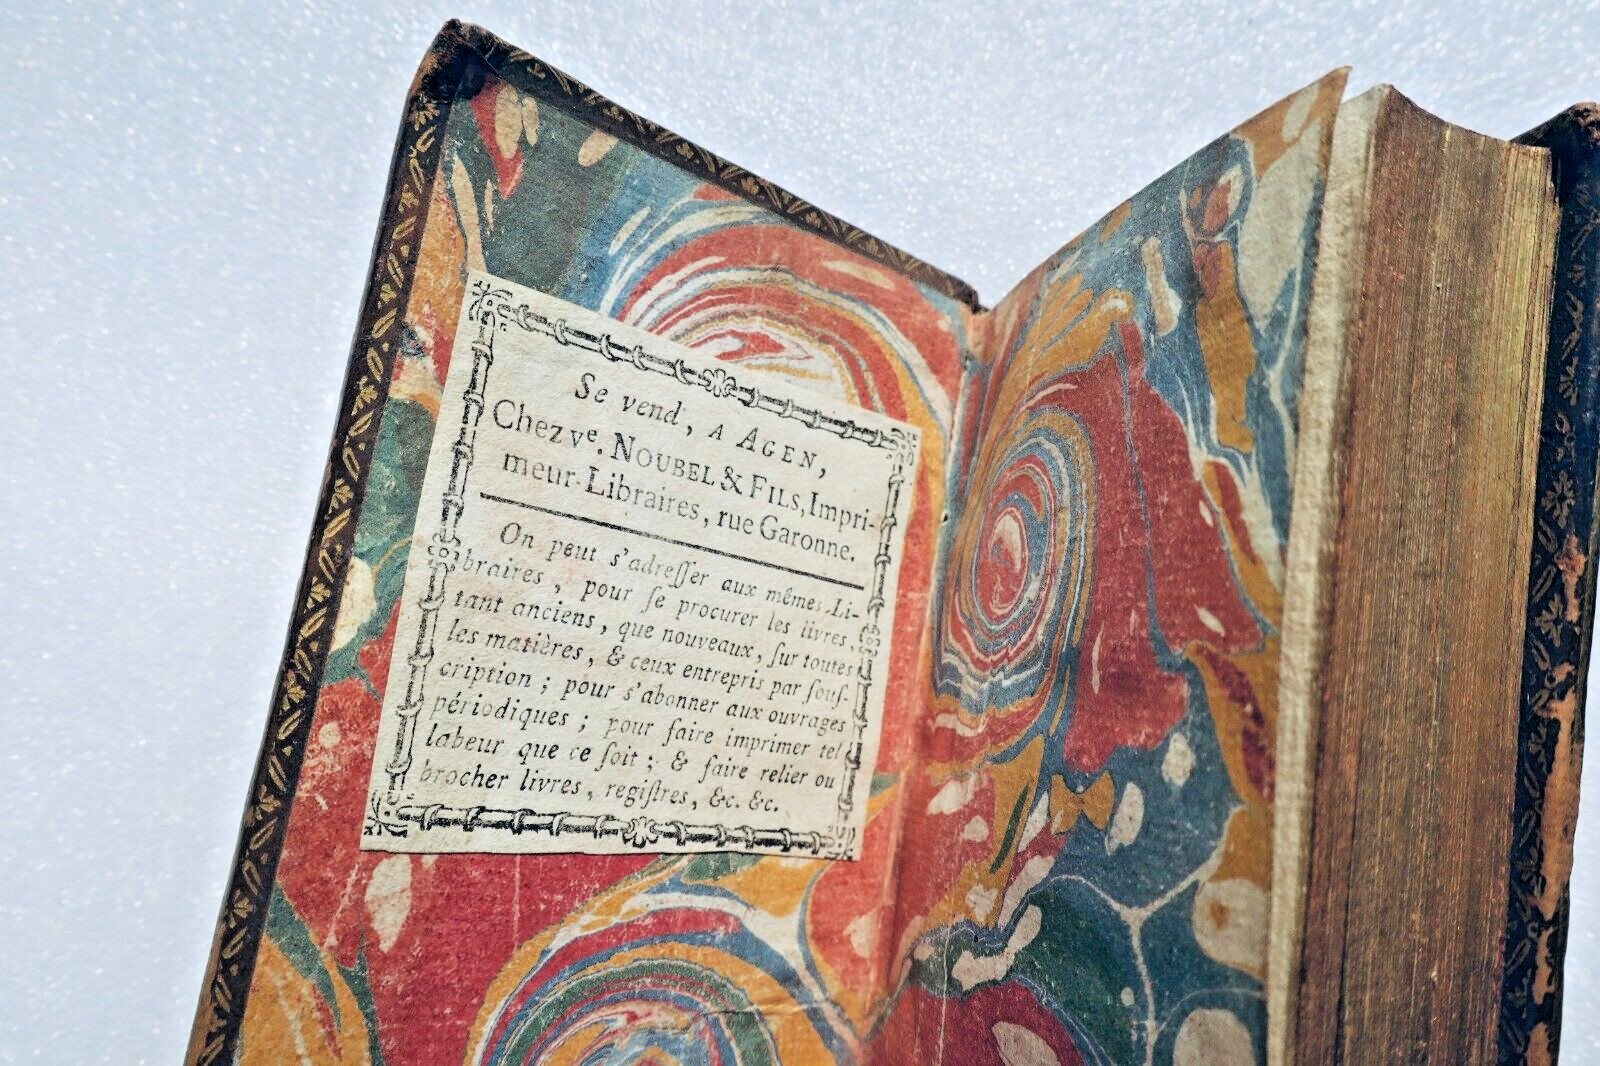 Se vend, A AGEN,
Chez vᵉ. NOUBEL & FILS, Impri-
meur-Libraires, rue Garonne.
On peut s'adreſſer aux mêmes Li-
braires, pour ſe procurer les livres,
tant anciens, que nouveaux, ſur toutes
les matières, & ceux entrepris par ſouſ-
cription ; pour s'abonner aux ouvrages
périodiques ; pour faire imprimer tel
labeur que ce ſoit ; & faire relier ou
brocher livres, regiſtres, &c. &c.